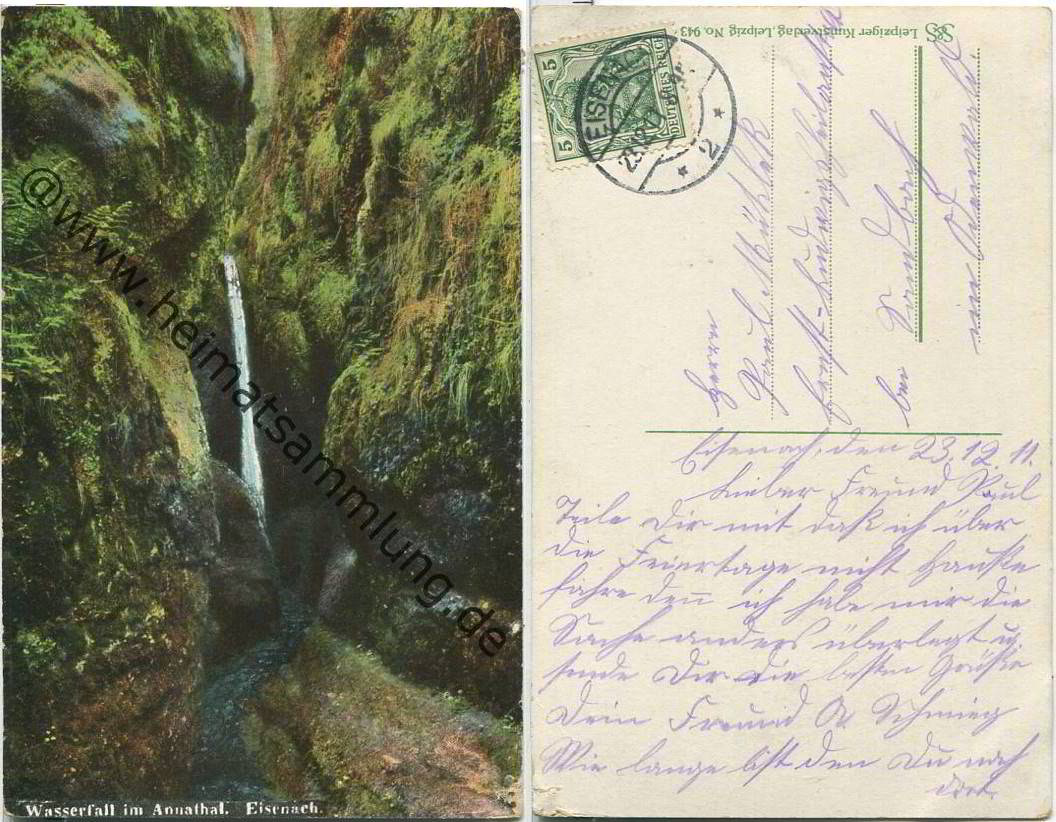 @www.heimatsammlung.de
Wasserfall im Annathal. Eisenach.
Leipziger Kunstverlag, Leipzig No. 943.
5
5
DEUTSCHES REICH
EISENACH
23.12.11
* 2 *
Herrn
Paul Mühlak
bei Sandbach
im Odenwald.
Eisenach, den 23.12.11.
Lieber Freund Paul
Teile Dir mit daß ich über
die Feiertage nicht Hause
fahre denn ich habe mir die
Sache anders überlegt u.
sende Dir die besten Grüße
Dein Freund A. Schmieg
Wie lange bist den Du noch
dort.